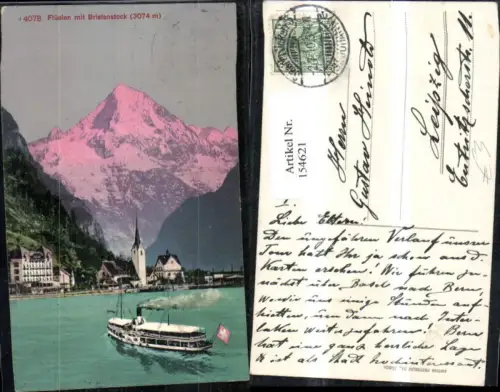 4078 Flüelen mit Bristenstock (3074 m)
Artikel Nr.
154621
Herrn
Gustav
Leipzig
11.
I.
Liebe Eltern!
Den ungefähren Verlauf unserer
Tour habt Ihr ja schon aus d.
Karten ersehen! Wir fuhren zu-
nächst über Basel nach Bern
wo wir uns einige Stunden auf-
hielten, um dann nach Inter-
laken weiterzufahren! Bern
hat eine ganz herrliche Lage
u. ist als Stadt hochinteressant.